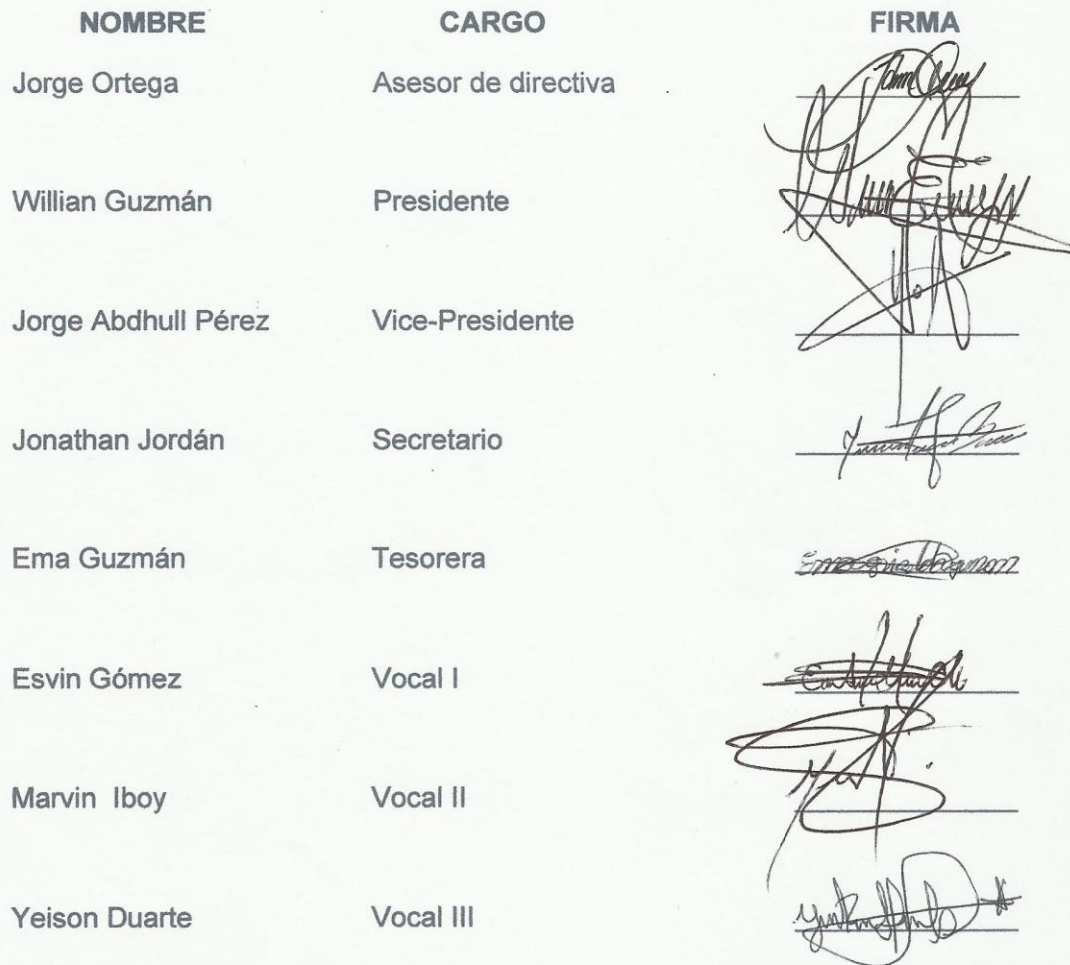 NOMBRE CARGO FIRMA
Jorge Ortega Asesor de directiva
Willian Guzmán Presidente
Jorge Abdhull Pérez Vice-Presidente
Jonathan Jordán Secretario
Ema Guzmán Tesorera
Esvin Gómez Vocal I
Marvin Iboy Vocal II
Yeison Duarte Vocal III